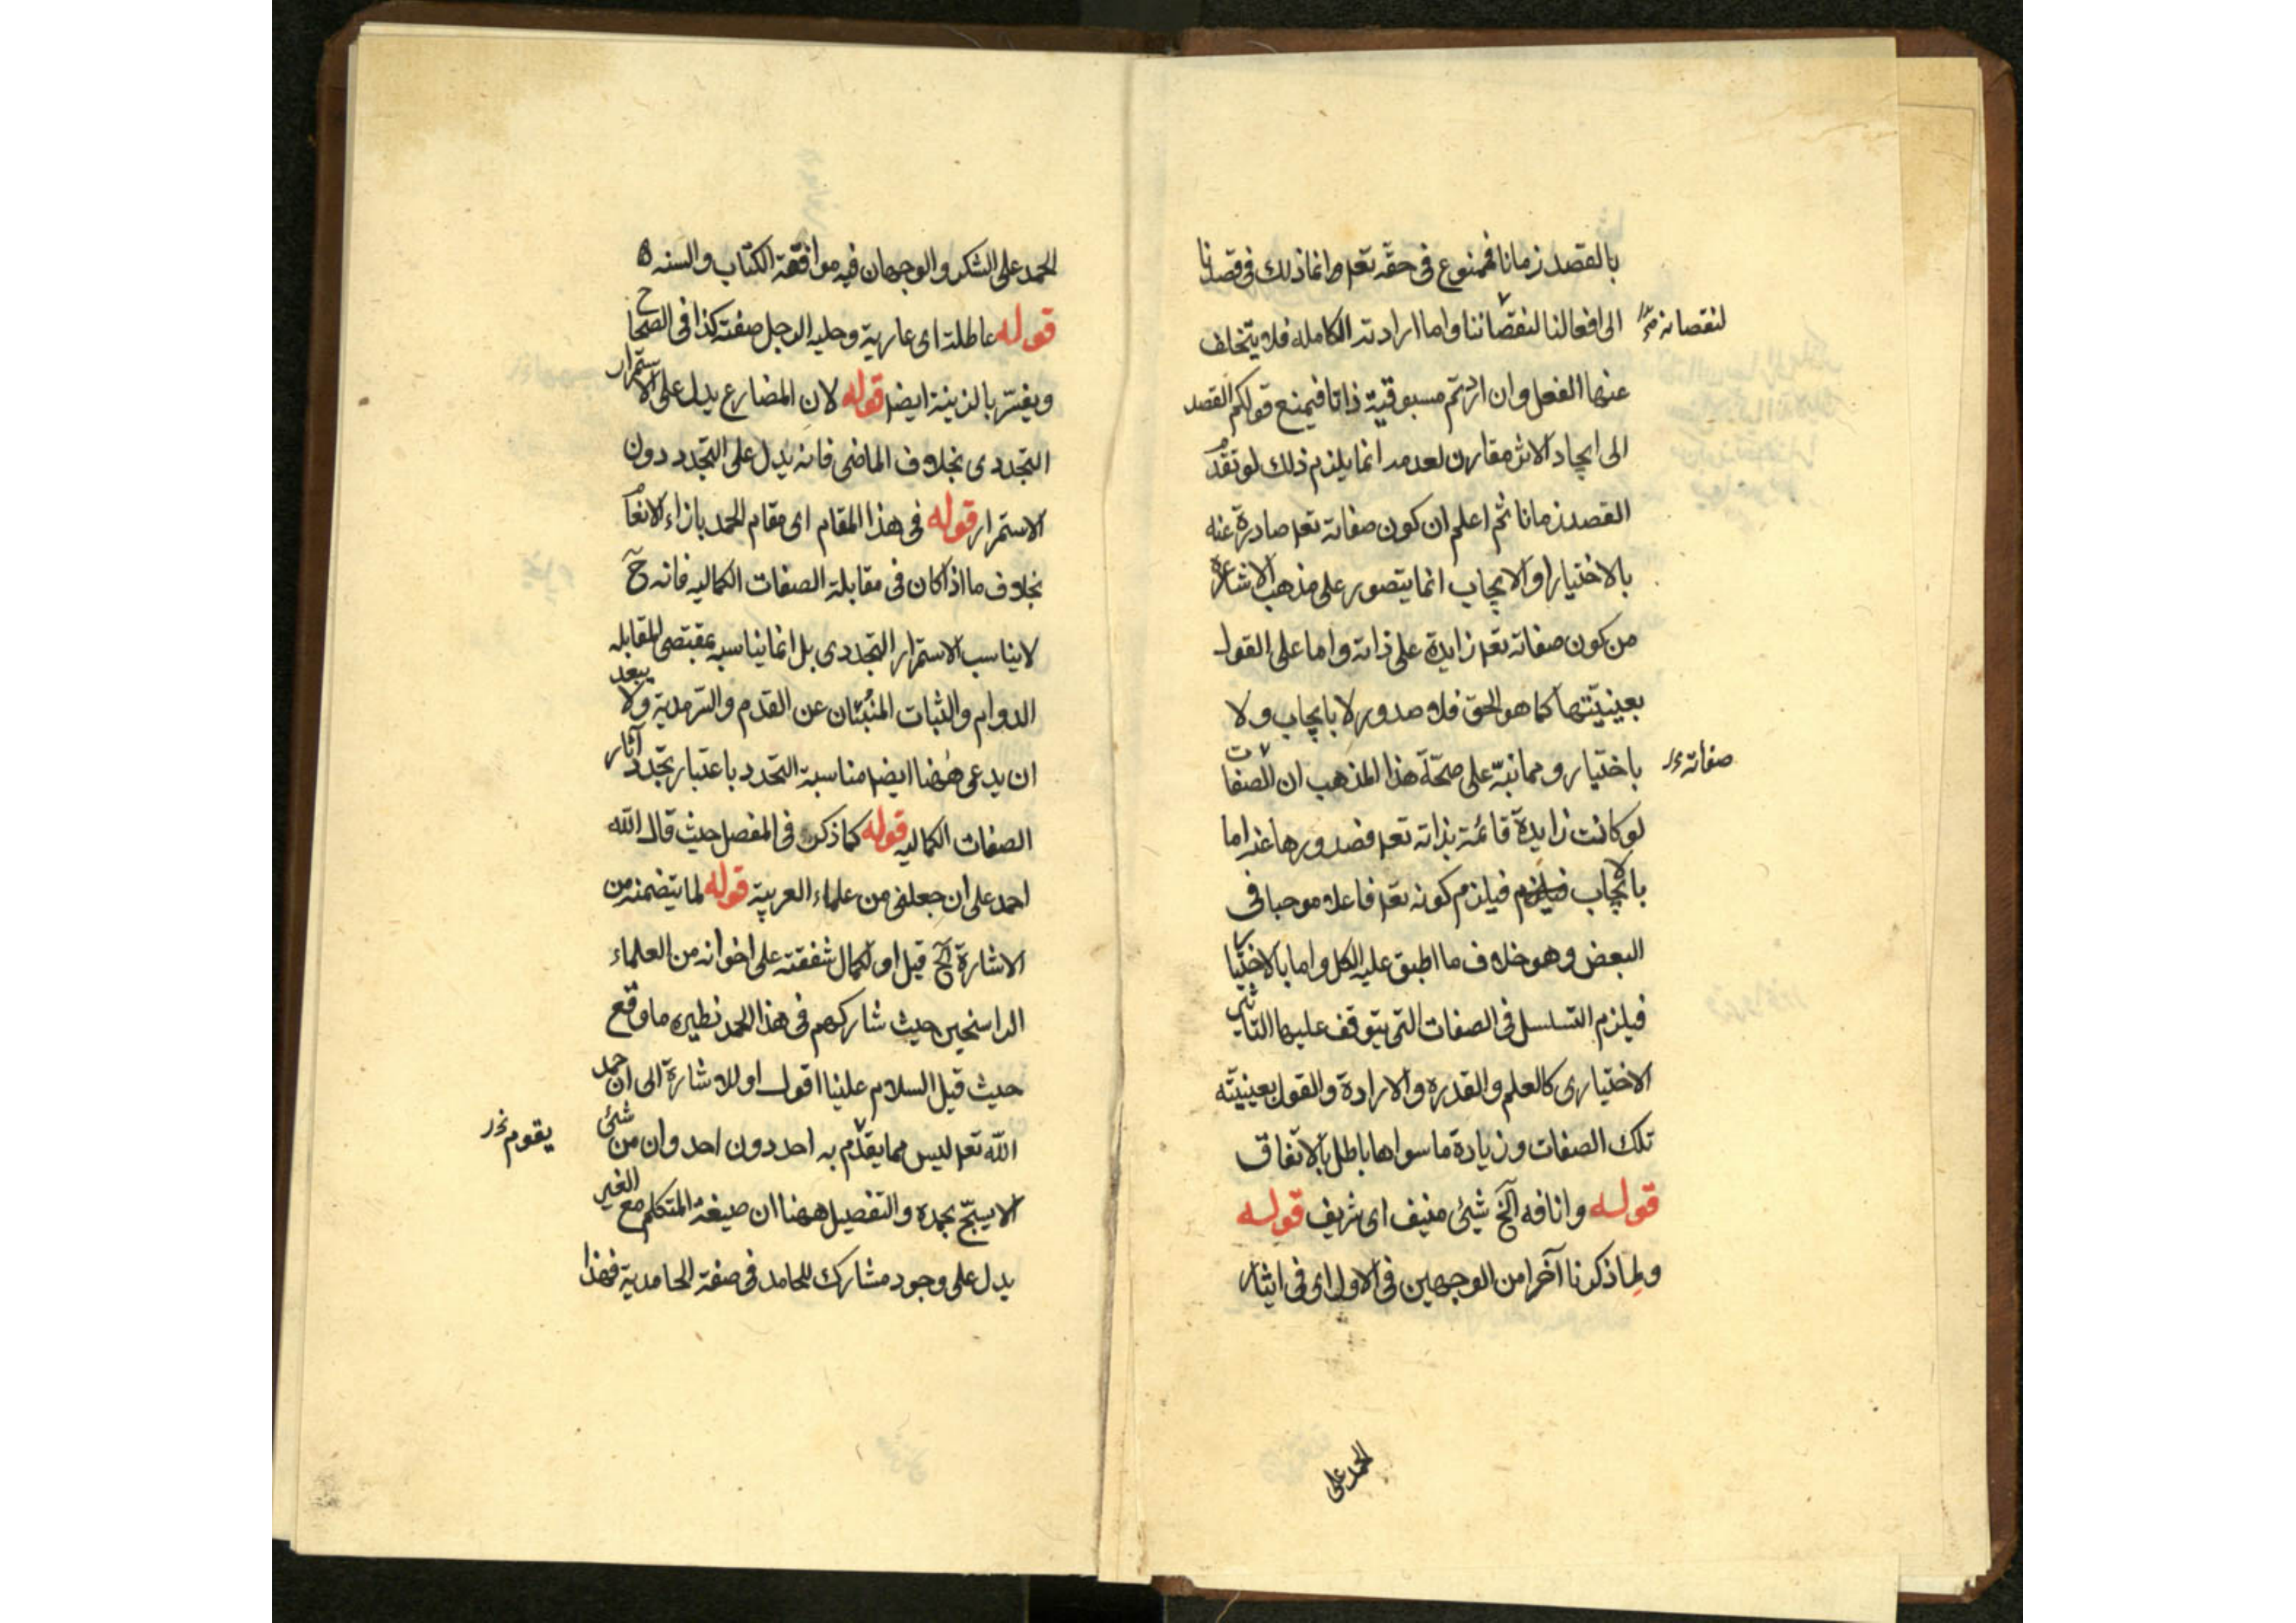 بالقصد زمانا فممنوع فى حقه تعم وانما ذلك فى قصدنا
الى افعالنا لنقصاننا واما ارادته الكامله فلا يتخلف
لنقصانه
عنها الفعل وان اردتم مسبوقية ذاتا فيمنع قولكم القصد
الى ايجاد الاثر مقارن لعدمه انما يلزم ذلك لو تقدم
القصد زمانا ثم اعلم ان كون صفاته تعم صادرة عنه
بالاختيار او الايجاب انما يتصور على مذهب الاشاعرة
من كون صفاته تعم زايدة على ذاته واما على القول
بعينيتها كما هو الحق فلا صدور لا بايجاب ولا
باختيار ومما نبه على صحة هذا المذهب ان الصفات
صفاته
لو كانت زايدة قائمة بذاته تعم فصدورها عنه اما
بالايجاب فيلزم كونه تعم فاعلا موجبا فى
البعض وهو خلاف ما اطبق عليه الكل واما بالاختيا
فيلزم التسلسل فى الصفات التى يتوقف عليها التاثير
الاختيارى كالعلم والقدره والارادة والقول بعينيته
تلك الصفات وزيادة ما سواها باطل بالاتفاق
قوله وانافه آلخ شيئ منيف اى شريف قوله
ولما ذكرنا آخرا من الوجهين فى الاول اى فى ايثار
الحمد على
الحمد على الشكر والوجهان فيه موافقة الكتاب والسنه
قوله عاطلة اى عارية وحليه الرجل صفته كذا فى الصحاح
ويفسر بالزينة ايضا قوله لان المضارع يدل على الاستمرار
التجددى بخلاف الماضى فانه يدل على التجدد دون
الاستمرار قوله فى هذا المقام اى مقام الحمد بازاء الانعا
بخلاف ما اذا كان فى مقابلة الصفات الكماليه فانه ح
لا يناسب الاستمرار التجددى بل انما يناسبه بمقتضى المقابله
الدوام والثبات المنبئان عن القدم والسرمدية ولا يبعد
ان يدعى ههنا ايضا مناسبة التجدد باعتبار تجدد آثار
الصفات الكماليه قوله كما ذكر فى المفصل حيث قال الله
احمد على ان جعلنى من علماء العربية قوله لما يتضمنه من
الاشارة آلخ قيل او لكمال شفقته على اخوانه من العلماء
الراسخين حيث شاركهم فى هذا الحمد نظيره ما وقع
حيث قيل السلام علينا اقول او للاشارة الى ان حمد
الله تعم ليس مما يقدم به احد دون احد وان من شئ
يقوم
الا يسبح بحمده والتفصيل ههنا ان صيغة المتكلم مع الغير
يدل على وجود مشارك للحامد فى صفة الحامدية فهذا